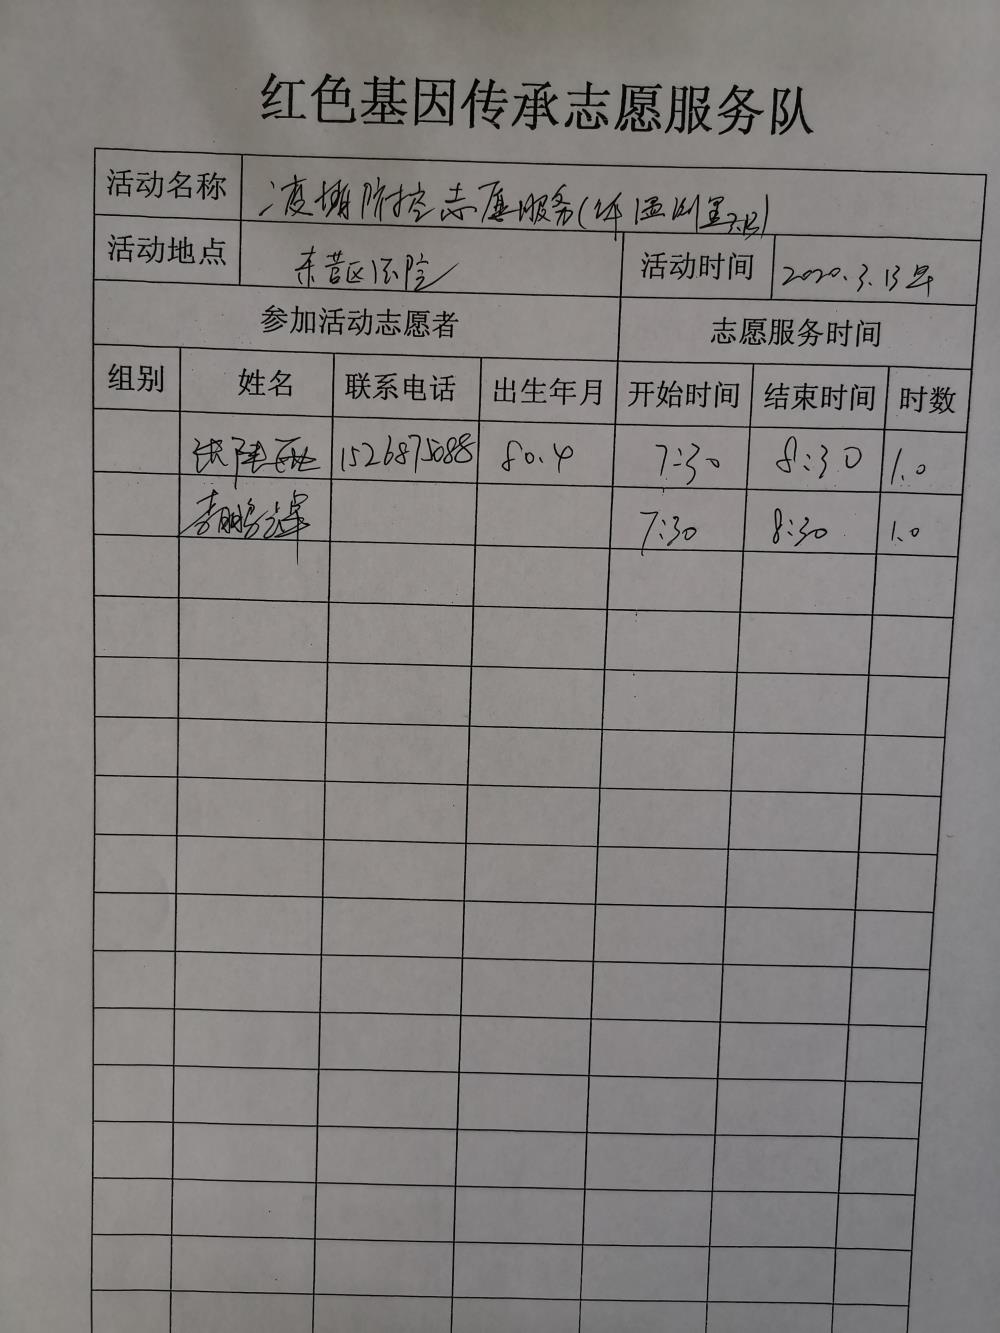 红色基因传承志愿服务队
活动名称 疫情防控志愿服务(体温测量3.13)
活动地点 东营区法院 活动时间 2020.3.13早
参加活动志愿者 志愿服务时间
组别 姓名 联系电话 出生年月 开始时间 结束时间 时数
1526875088 80.4 7:30 8:30 1.0
7:30 8:30 1.0